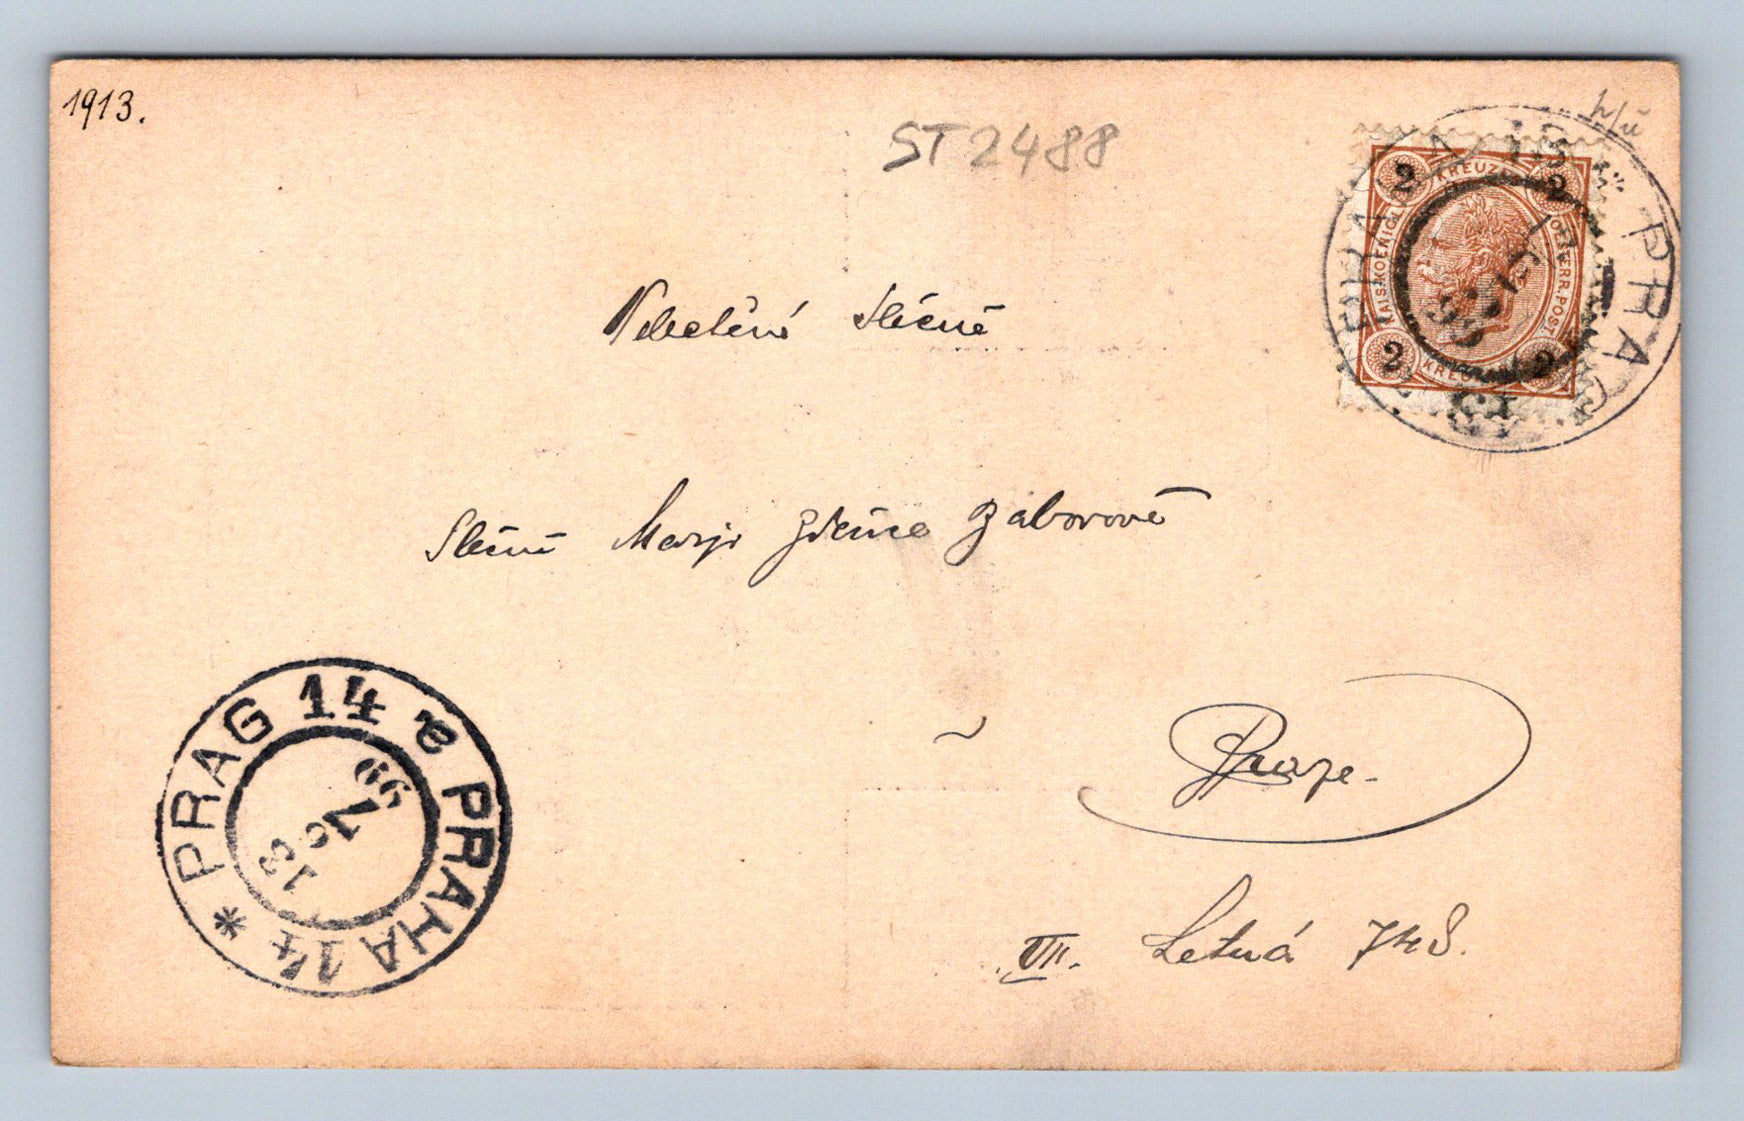 1913.
ST 2488
2 KREUZER 2
KAIS.KOENIGL. OESTERR.POST.
2 KREUZER 2
PRAG
Velectěné Slečně
Slečně Marji Zdence Záborové
v Praze.
VII. Letná 748.
PRAG 14 PRAHA 14
13
99